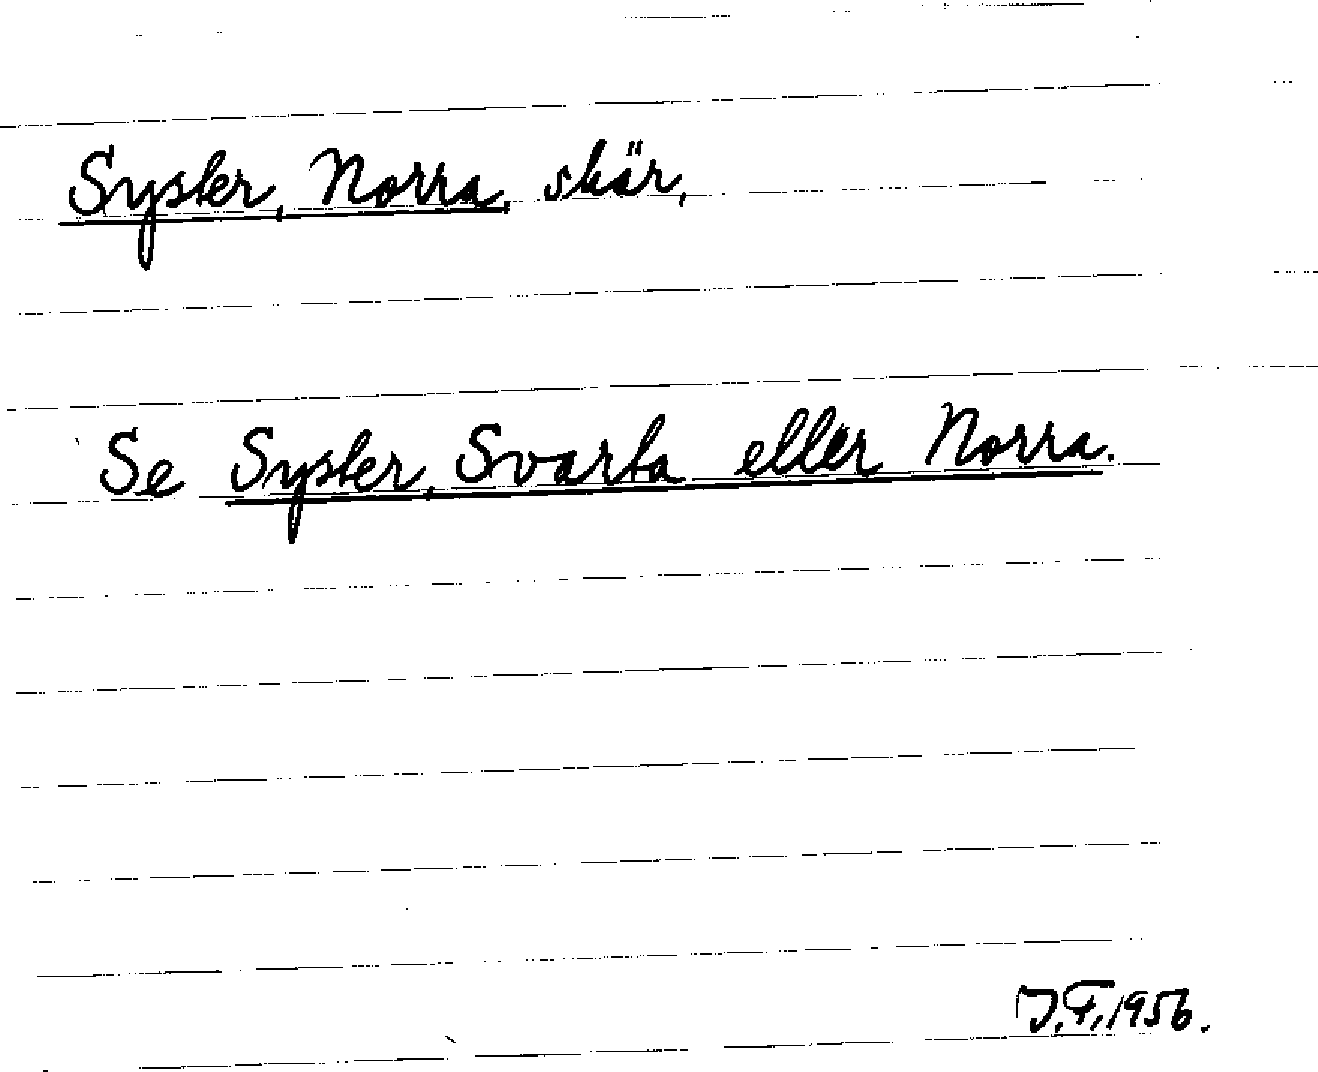 Sysler, Norra, skär,
Se Sysler, Svarta eller Norra.
J.F. 1956.